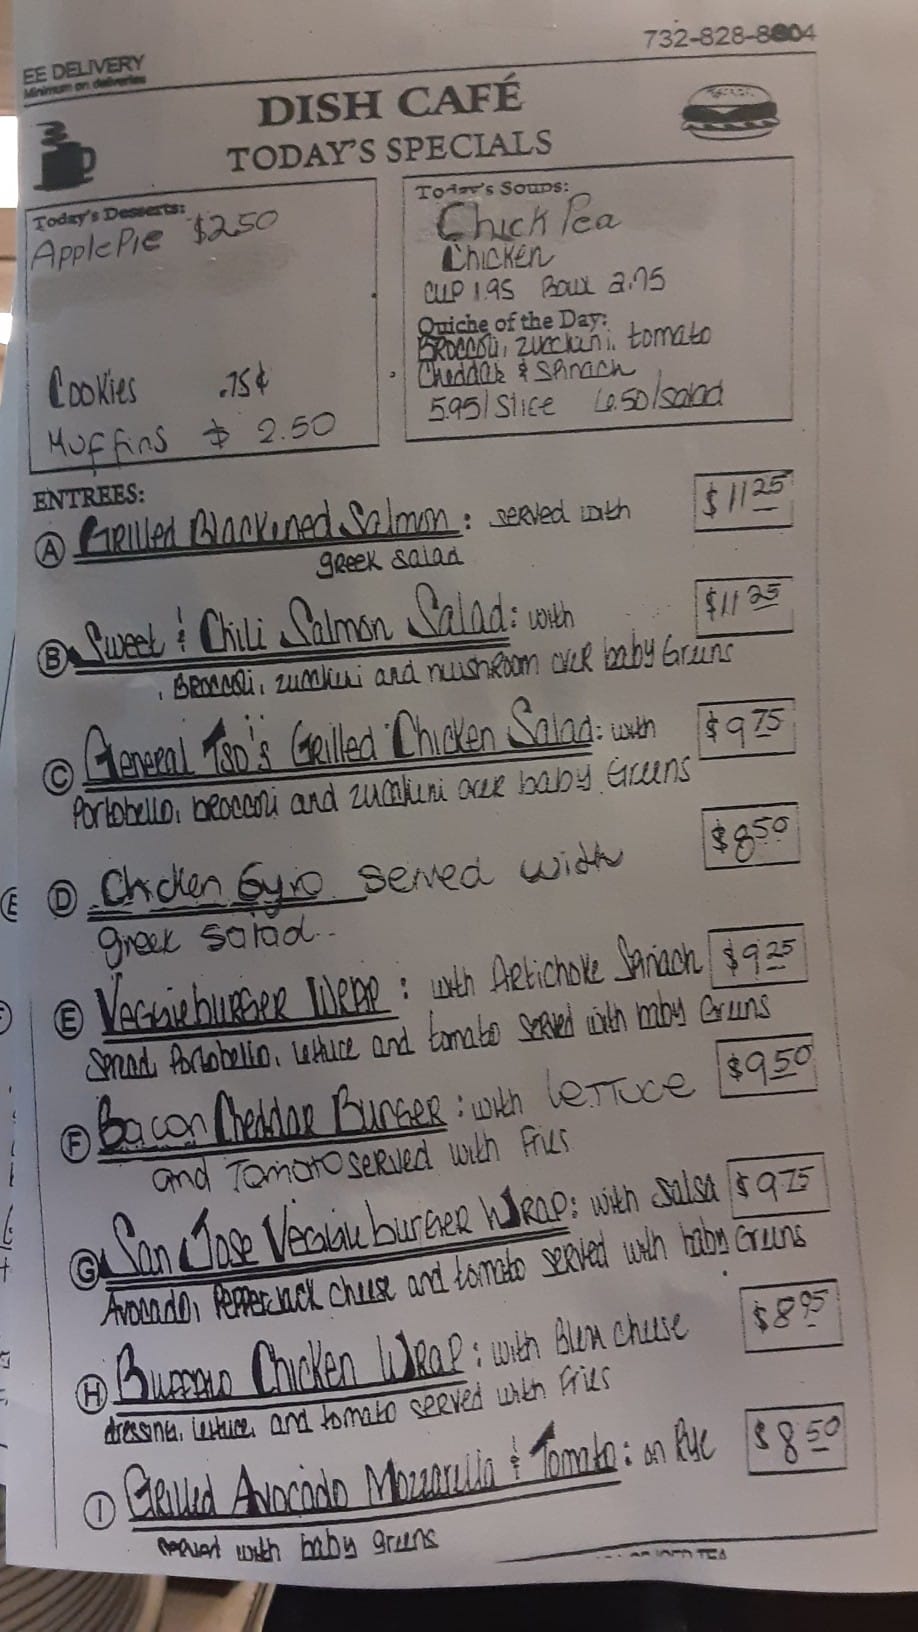 732-828-8804
EE DELIVERY
Minimum on deliveries
DISH CAFÉ
TODAY'S SPECIALS
Today's Desserts:
Apple Pie $2.50
Cookies .75¢
Muffins $ 2.50
Today's Soups:
Chick Pea
Chicken
Cup 1.95 Bowl 2.75
Quiche of the Day:
Broccoli, zucchini, tomato
Cheddar & spinach
5.95/Slice 6.50/salad
ENTREES:
A Grilled Blackened Salmon: served with $11.25
greek salad
B Sweet & Chili Salmon Salad: with $11.25
Broccoli, zucchini and mushroom over baby Greens
C General Tso's Grilled Chicken Salad: with $9.75
Portobello, broccoli and zucchini over baby Greens
D Chicken Gyro served with $8.50
greek salad
E Veggieburger Wrap: with Artichoke Spinach $9.25
Spread, Portobello, lettuce and tomato served with baby Greens
F Bacon Cheddar Burger: with Lettuce $9.50
and Tomato served with Fries
G San Jose Veggieburger Wrap: with salsa $9.75
Avocado, Pepperjack cheese and tomato served with baby Greens
H Buffalo Chicken Wrap: with Bleu cheese $8.95
dressing, lettuce, and tomato served with Fries
I Grilled Avocado Mozzarella & Tomato: on Rye $8.50
served with baby greens